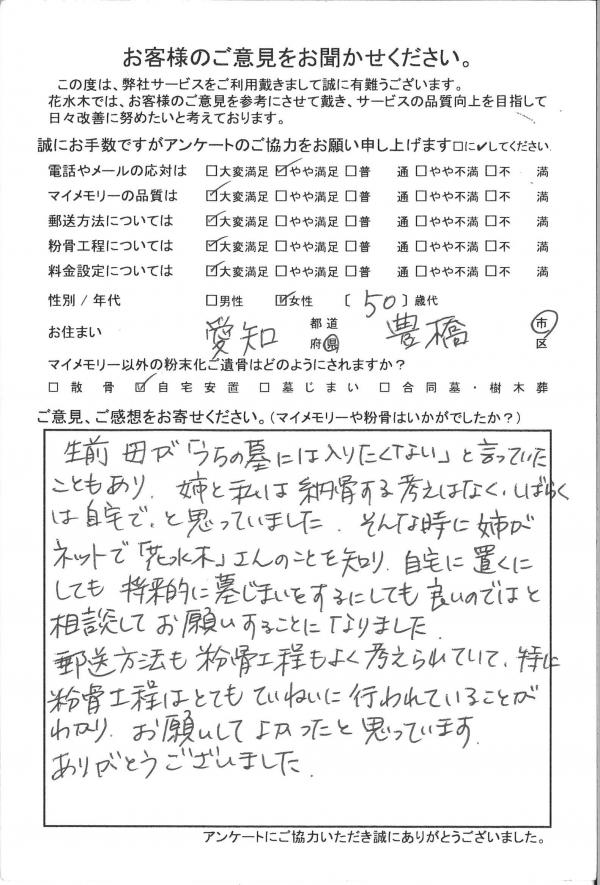 お客様のご意見をお聞かせください。
この度は、弊社サービスをご利用戴きまして誠に有難うございます。
花水木では、お客様のご意見を参考にさせて戴き、サービスの品質向上を目指して
日々改善に努めたいと考えております。
誠にお手数ですがアンケートのご協力をお願い申し上げます□に✔してください.
電話やメールの応対は □大変満足 ☑やや満足 □普 通 □やや不満 □不 満
マイメモリーの品質は ☑大変満足 □やや満足 □普 通 □やや不満 □不 満
郵送方法については ☑大変満足 □やや満足 □普 通 □やや不満 □不 満
粉骨工程については ☑大変満足 □やや満足 □普 通 □やや不満 □不 満
料金設定については ☑大変満足 □やや満足 □普 通 □やや不満 □不 満
性別 / 年代 □男性 ☑女性 [ 50 ]歳代
お住まい 愛知 都道府県 豊橋 市区
マイメモリー以外の粉末化ご遺骨はどのようにされますか?
□ 散骨 ☑ 自宅安置 □ 墓じまい □ 合同墓・樹木葬
ご意見、ご感想をお寄せください。(マイメモリーや粉骨はいかがでしたか?)
生前 母が「うちの墓には入りたくない」と言っていた
こともあり、姉と私は納骨する考えはなく、しばらく
は自宅で、と思っていました。そんな時に姉が
ネットで「花水木」さんのことを知り、自宅に置くに
しても 将来的に墓じまいをするにしても 良いのではと
相談して お願いすることになりました。
郵送方法も 粉骨工程もよく考えられていて、特に
粉骨工程はとても ていねいに 行われていることが
わかり、お願いして よかったと 思っています。
ありがとうございました。
アンケートにご協力いただき誠にありがとうございました。